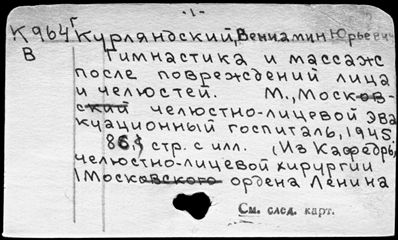 -1-
К964г Курляндский, Вениамин Юрьевич
В Гимнастика и массаж
после повреждений лица
и челюстей. М., Москов-
ский челюстно-лицевой эва
куационный госпиталь, 1945.
86, стр. с илл. (Из Кафедры
челюстно-лицевой хирургии
1 Московского ордена Ленина
См. след. карт.